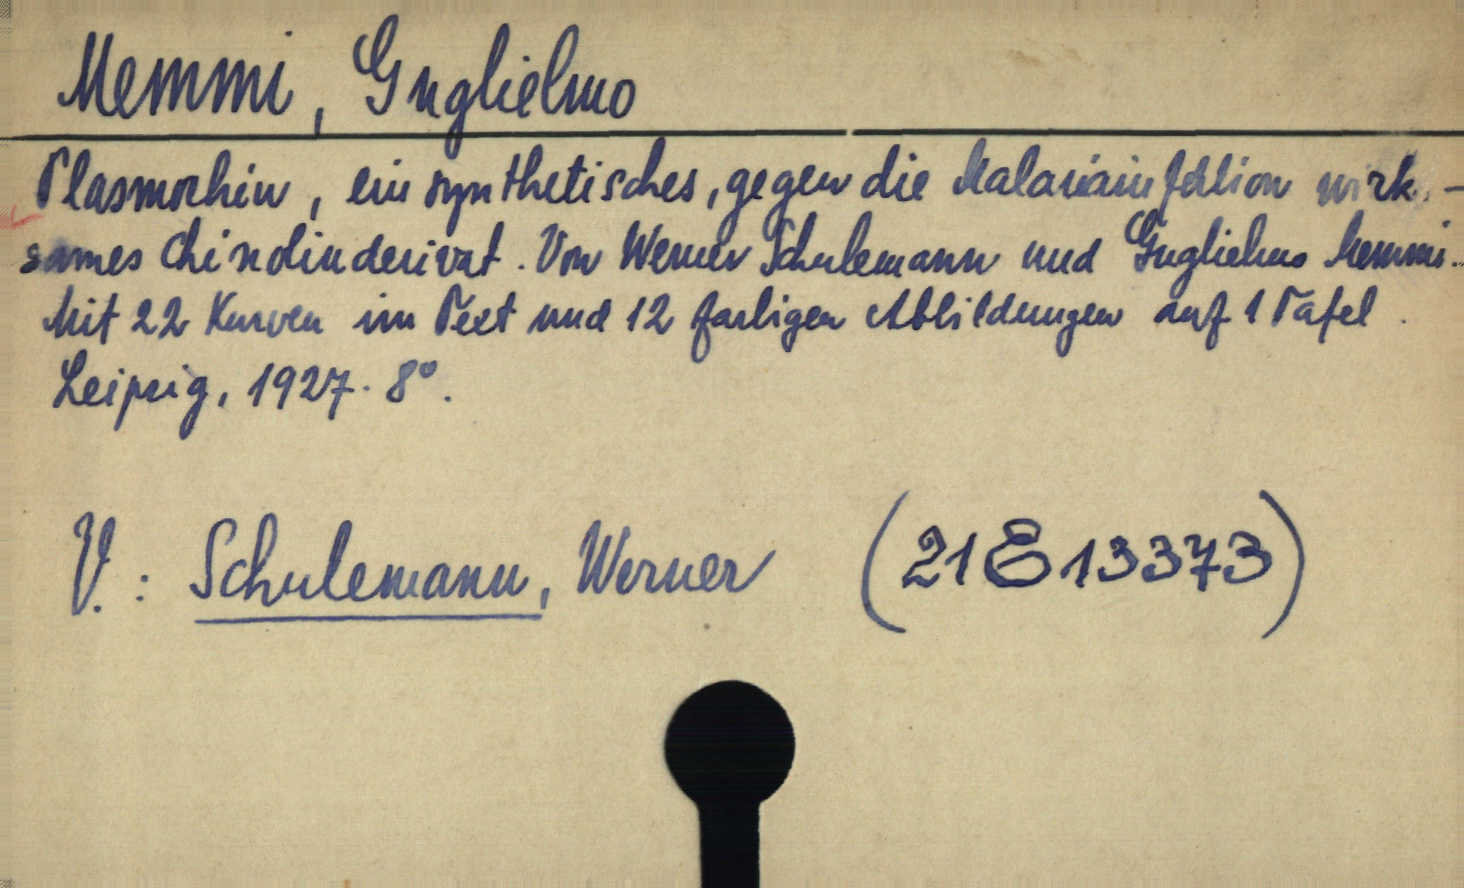 Memmi, Guglielmo
Plasmochin, ein synthetisches, gegen die Malariainfektion wirk-
sames Chinolinderivat. Von Werner Schulemann und Guglielmo Memmi.
Mit 22 Kurven im Text und 12 farbigen Abbildungen auf 1 Tafel.
Leipzig, 1927. 8°.
V.: Schulemann, Werner (21 E 13373)